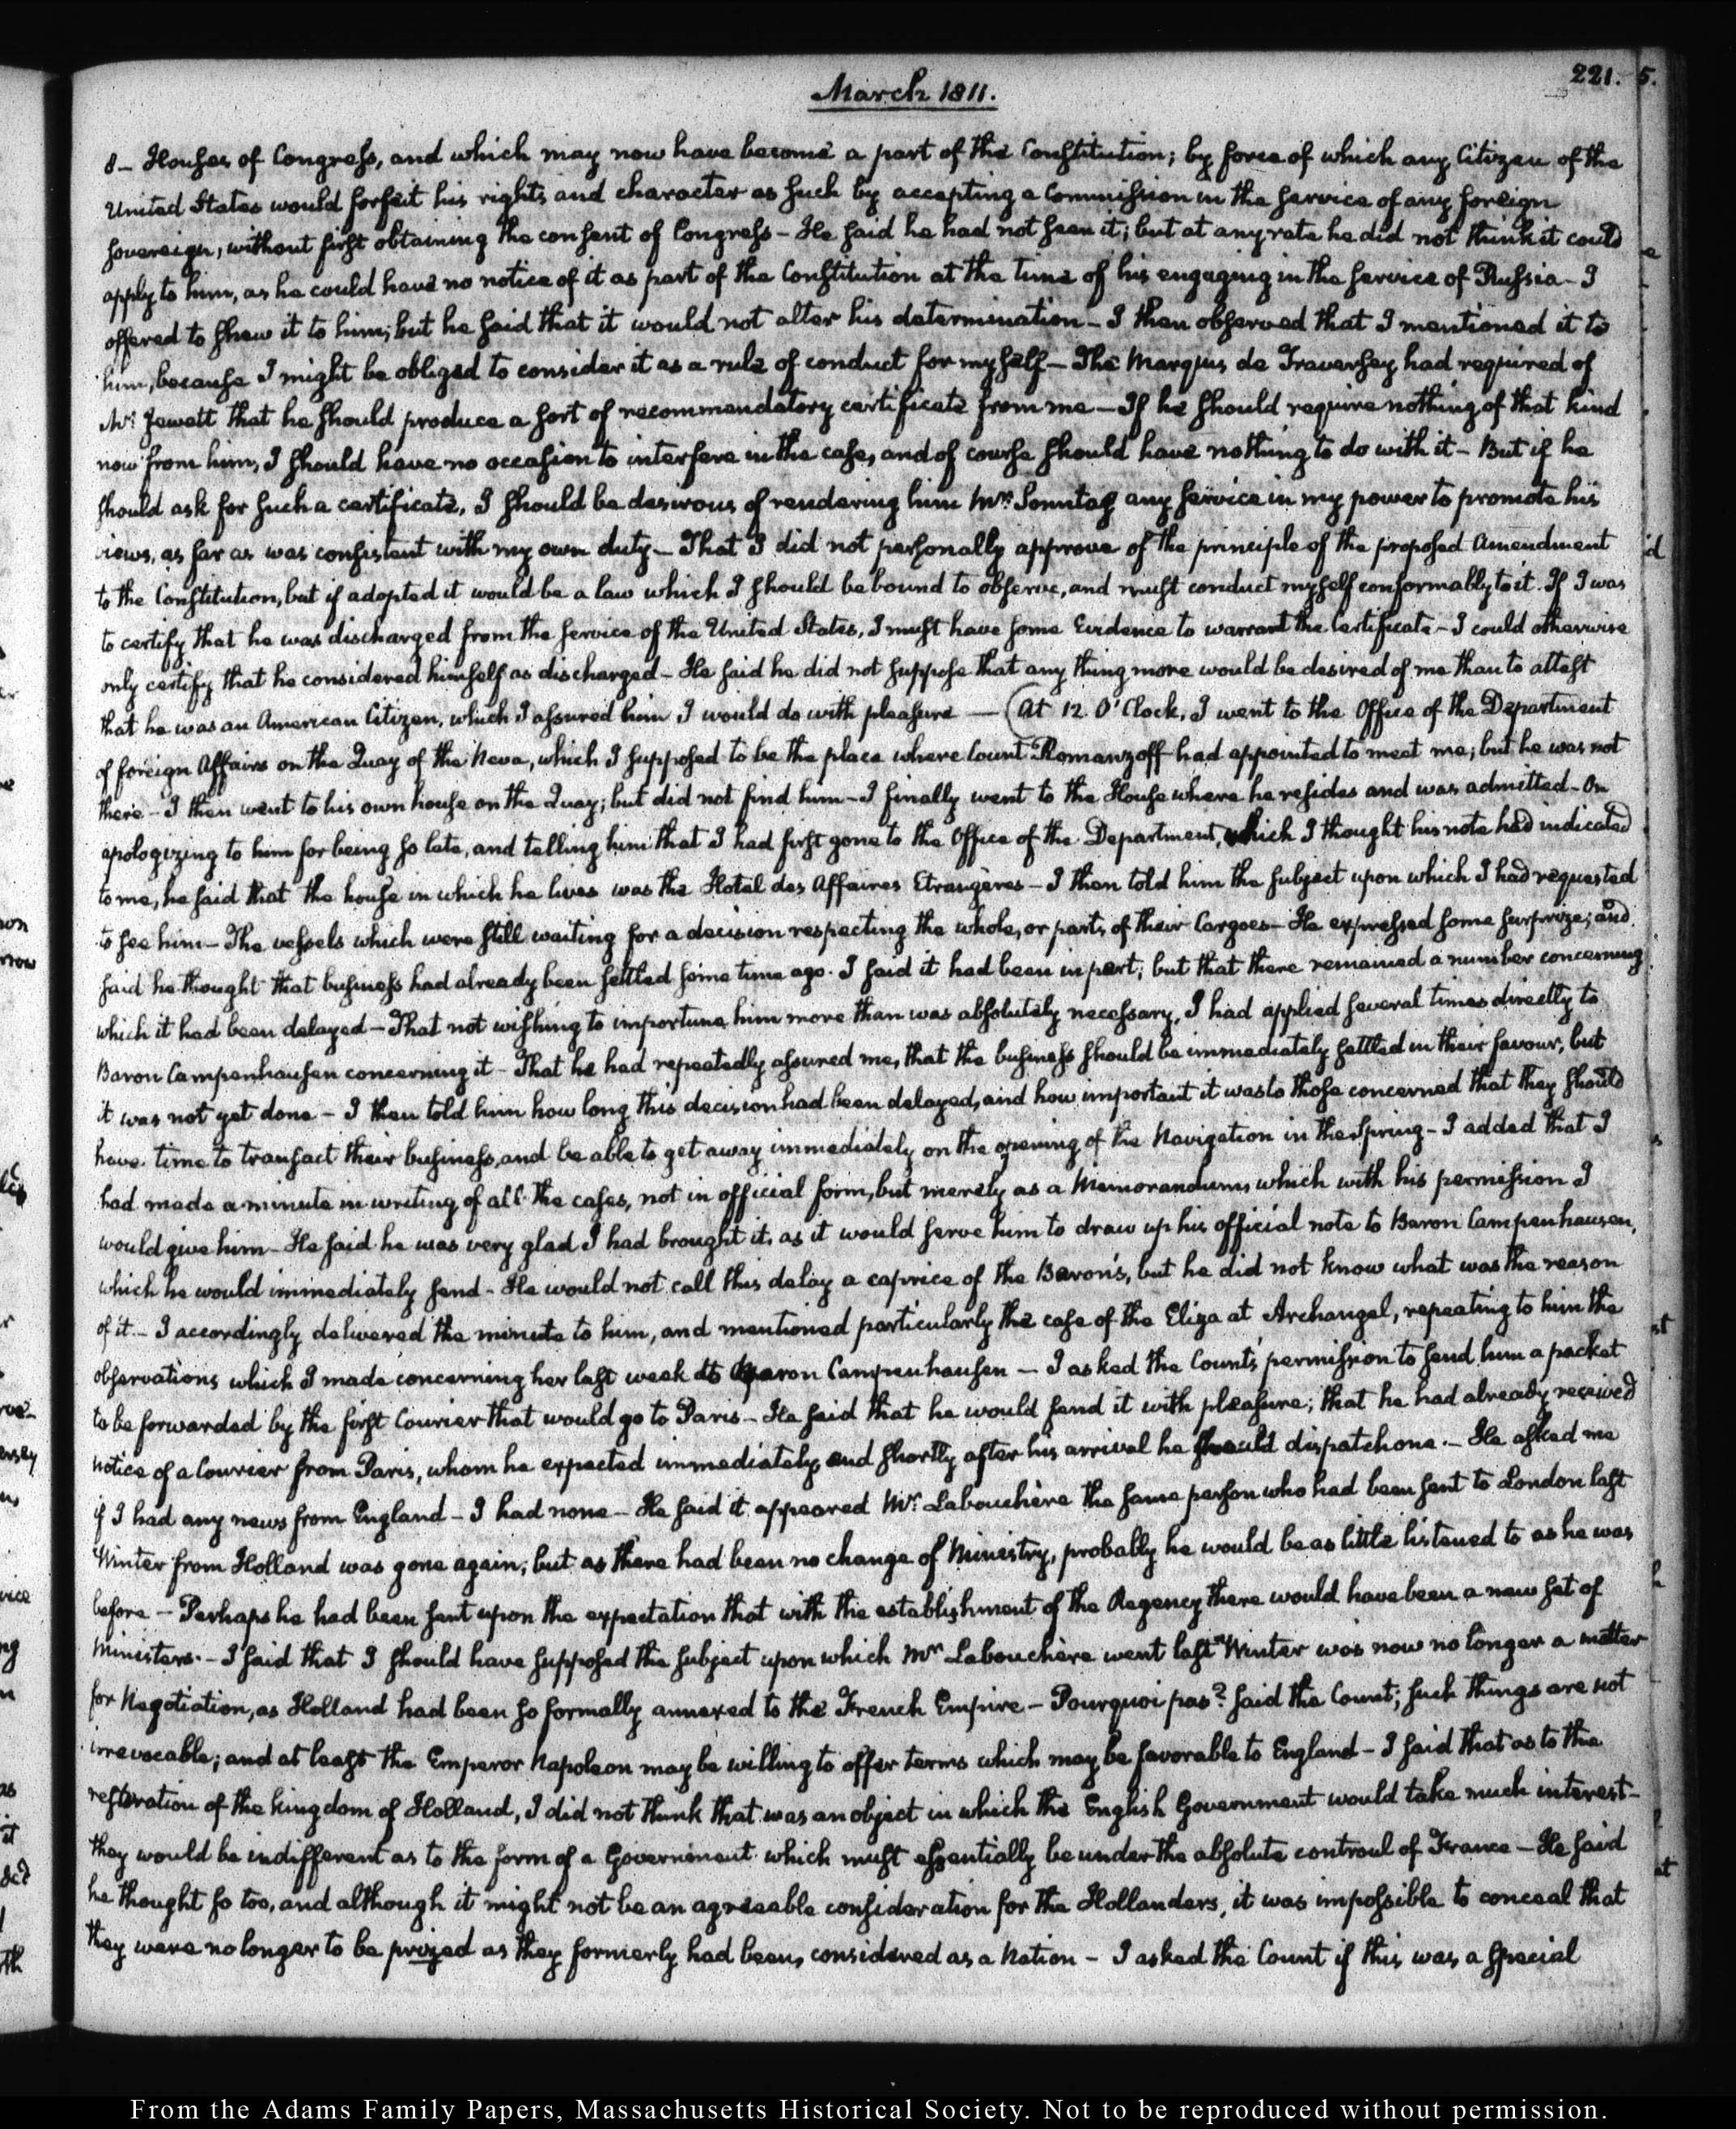 221.
March 1811.
8 – Houses of Congress, and which may now have become a part of the Constitution; by force of which any Citizen of the
United States would forfeit his rights and character as such by accepting a Commission in the service of any foreign
sovereign, without first obtaining the consent of Congress – He said he had not seen it; but at any rate he did not think it could
apply to him, as he could have no notice of it as part of the Constitution at the time of his engaging in the service of Russia – I
offered to shew it to him; but he said that it would not alter his determination – I then observed that I mentioned it to
him, because I might be obliged to consider it as a rule of conduct for myself – The Marquis de Traversey had required of
Mr. Jewett that he should produce a sort of recommendatory certificate from me – If he should require nothing of that kind
now from him, I should have no occasion to interfere in the case, and of course should have nothing to do with it – But if he
should ask for such a certificate, I should be desirous of rendering him Mr. Sonntag any service in my power to promote his
views, as far as was consistent with my own duty – That I did not personally approve of the principle of the proposed Amendment
to the Constitution, but if adopted it would be a law which I should be bound to observe, and must conduct myself conformably to it. If I was
to certify that he was discharged from the service of the United States, I must have some Evidence to warrant the Certificate – I could otherwise
only certify that he considered himself as discharged – He said he did not suppose that any thing more would be desired of me than to attest
that he was an American Citizen, which I assured him I would do with pleasure — (At 12 O'Clock, I went to the Office of the Department
of foreign Affairs on the Quay of the Neva, which I supposed to be the place where Count Romanzoff had appointed to meet me; but he was not
there – I then went to his own house on the Quay; but did not find him – I finally went to the House where he resides and was admitted – On
apologizing to him for being so late, and telling him that I had first gone to the Office of the Department, which I thought his note had indicated
to me, he said that the house in which he lives was the Hotel des Affaires Etrangères – I then told him the subject upon which I had requested
to see him – The vessels which were still waiting for a decision respecting the whole, or parts of their Cargoes – He expressed some surprize; and
said he thought that business had already been settled some time ago. I said it had been in part; but that there remained a number concerning
which it had been delayed – That not wishing to importune him more than was absolutely necessary, I had applied several times directly to
Baron Campenhausen concerning it – That he had repeatedly assured me, that the business should be immediately settled in their favour, but
it was not yet done – I then told him how long this decision had been delayed, and how important it was to those concerned that they should
have time to transact their business, and be able to get away immediately on the opening of the Navigation in the Spring – I added that I
had made a minute in writing of all the cases, not in official form, but merely as a Memorandum, which with his permission I
would give him – He said he was very glad I had brought it, as it would serve him to draw up his official note to Baron Campenhausen,
which he would immediately send – He would not call this delay a caprice of the Baron's, but he did not know what was the reason
of it – I accordingly delivered the minute to him, and mentioned particularly the case of the Eliza at Archangel, repeating to him the
observations which I made concerning her last week to Baron Campenhausen – I asked the Count's permission to send him a packet
to be forwarded by the first Courier that would go to Paris – He said that he would send it with pleasure; that he had already received
notice of a Courier from Paris, whom he expected immediately, and shortly after his arrival he should dispatch one. – He asked me
if I had any news from England – I had none – He said it appeared Mr. Labouchère the same person who had been sent to London last
Winter from Holland was gone again; but as there had been no change of Ministry, probably he would be as little listened to as he was
before – Perhaps he had been sent upon the expectation that with the establishment of the Regency there would have been a new set of
Ministers. – I said that I should have supposed the subject upon which Mr. Labouchère went last Winter was now no longer a matter
for Negotiation, as Holland had been so formally annexed to the French Empire – Pourquoi pas? said the Count; such things are not
irrevocable; and at least the Emperor Napoleon may be willing to offer terms which may be favorable to England – I said that as to the
restoration of the kingdom of Holland, I did not think that was an object in which the English Government would take much interest –
they would be indifferent as to the form of a Government which must essentially be under the absolute controul of France – He said
he thought so too, and although it might not be an agreeable consideration for the Hollanders, it was impossible to conceal that
they were no longer to be prized as they formerly had been, considered as a Nation – I asked the Count if this was a special
From the Adams Family Papers, Massachusetts Historical Society. Not to be reproduced without permission.